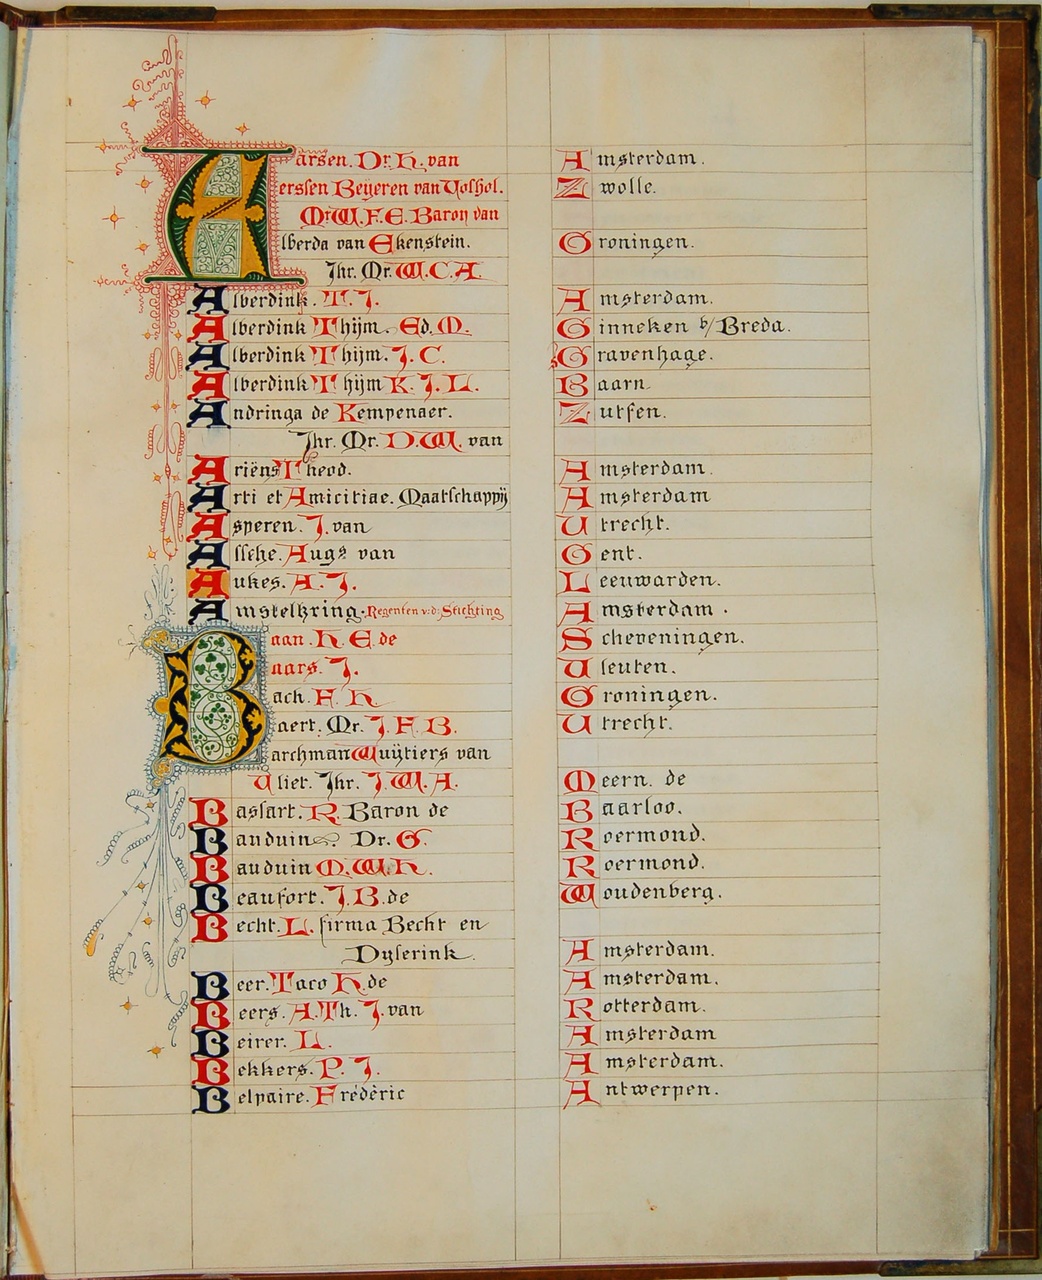 Aarsen. Dr. H. van Amsterdam.
Aerssen Beÿeren van Voshol. Zwolle.
Mr. W. F. E. Baron van
Alberda van Ekenstein. Groningen.
Jhr. Mr. W. C. A.
Alberdink. T. J. Amsterdam.
Alberdink Thijm. Ed. M. Ginneken b/Breda.
Alberdink Thijm. J. C. 's Gravenhage.
Alberdink Thijm K. J. L. Baarn.
Andringa de Kempenaer. Zutfen.
Jhr. Mr. D. W. van
Ariëns Theod. Amsterdam.
Arti et Amicitiae. Maatschappij Amsterdam
Asperen. J. van Utrecht.
Assche. Augs van Gent.
Aukes. A. J. Leeuwarden.
Amstelkring. Regenten v. d. Stichting Amsterdam.
Baan. H. E. de Scheveningen.
Baars. J. Vleuten.
Bach. F. H. Groningen.
Baert. Mr. J. F. B. Utrecht.
Barchman Wuÿtiers van
Vliet. Jhr. J. W. A. Meern. de
Bassart. R. Baron de Baarloo.
Bauduin Dr. G. Roermond.
Bauduin M. W. H. Roermond.
Beaufort. J. B. de Woudenberg.
Becht. L. firma Becht en
Dyserink. Amsterdam.
Beer. Taco H. de Amsterdam.
Beers. A. Th. J. van Rotterdam.
Beirer. L. Amsterdam
Bekkers. P. J. Amsterdam.
Belpaire. Frédéric Antwerpen.